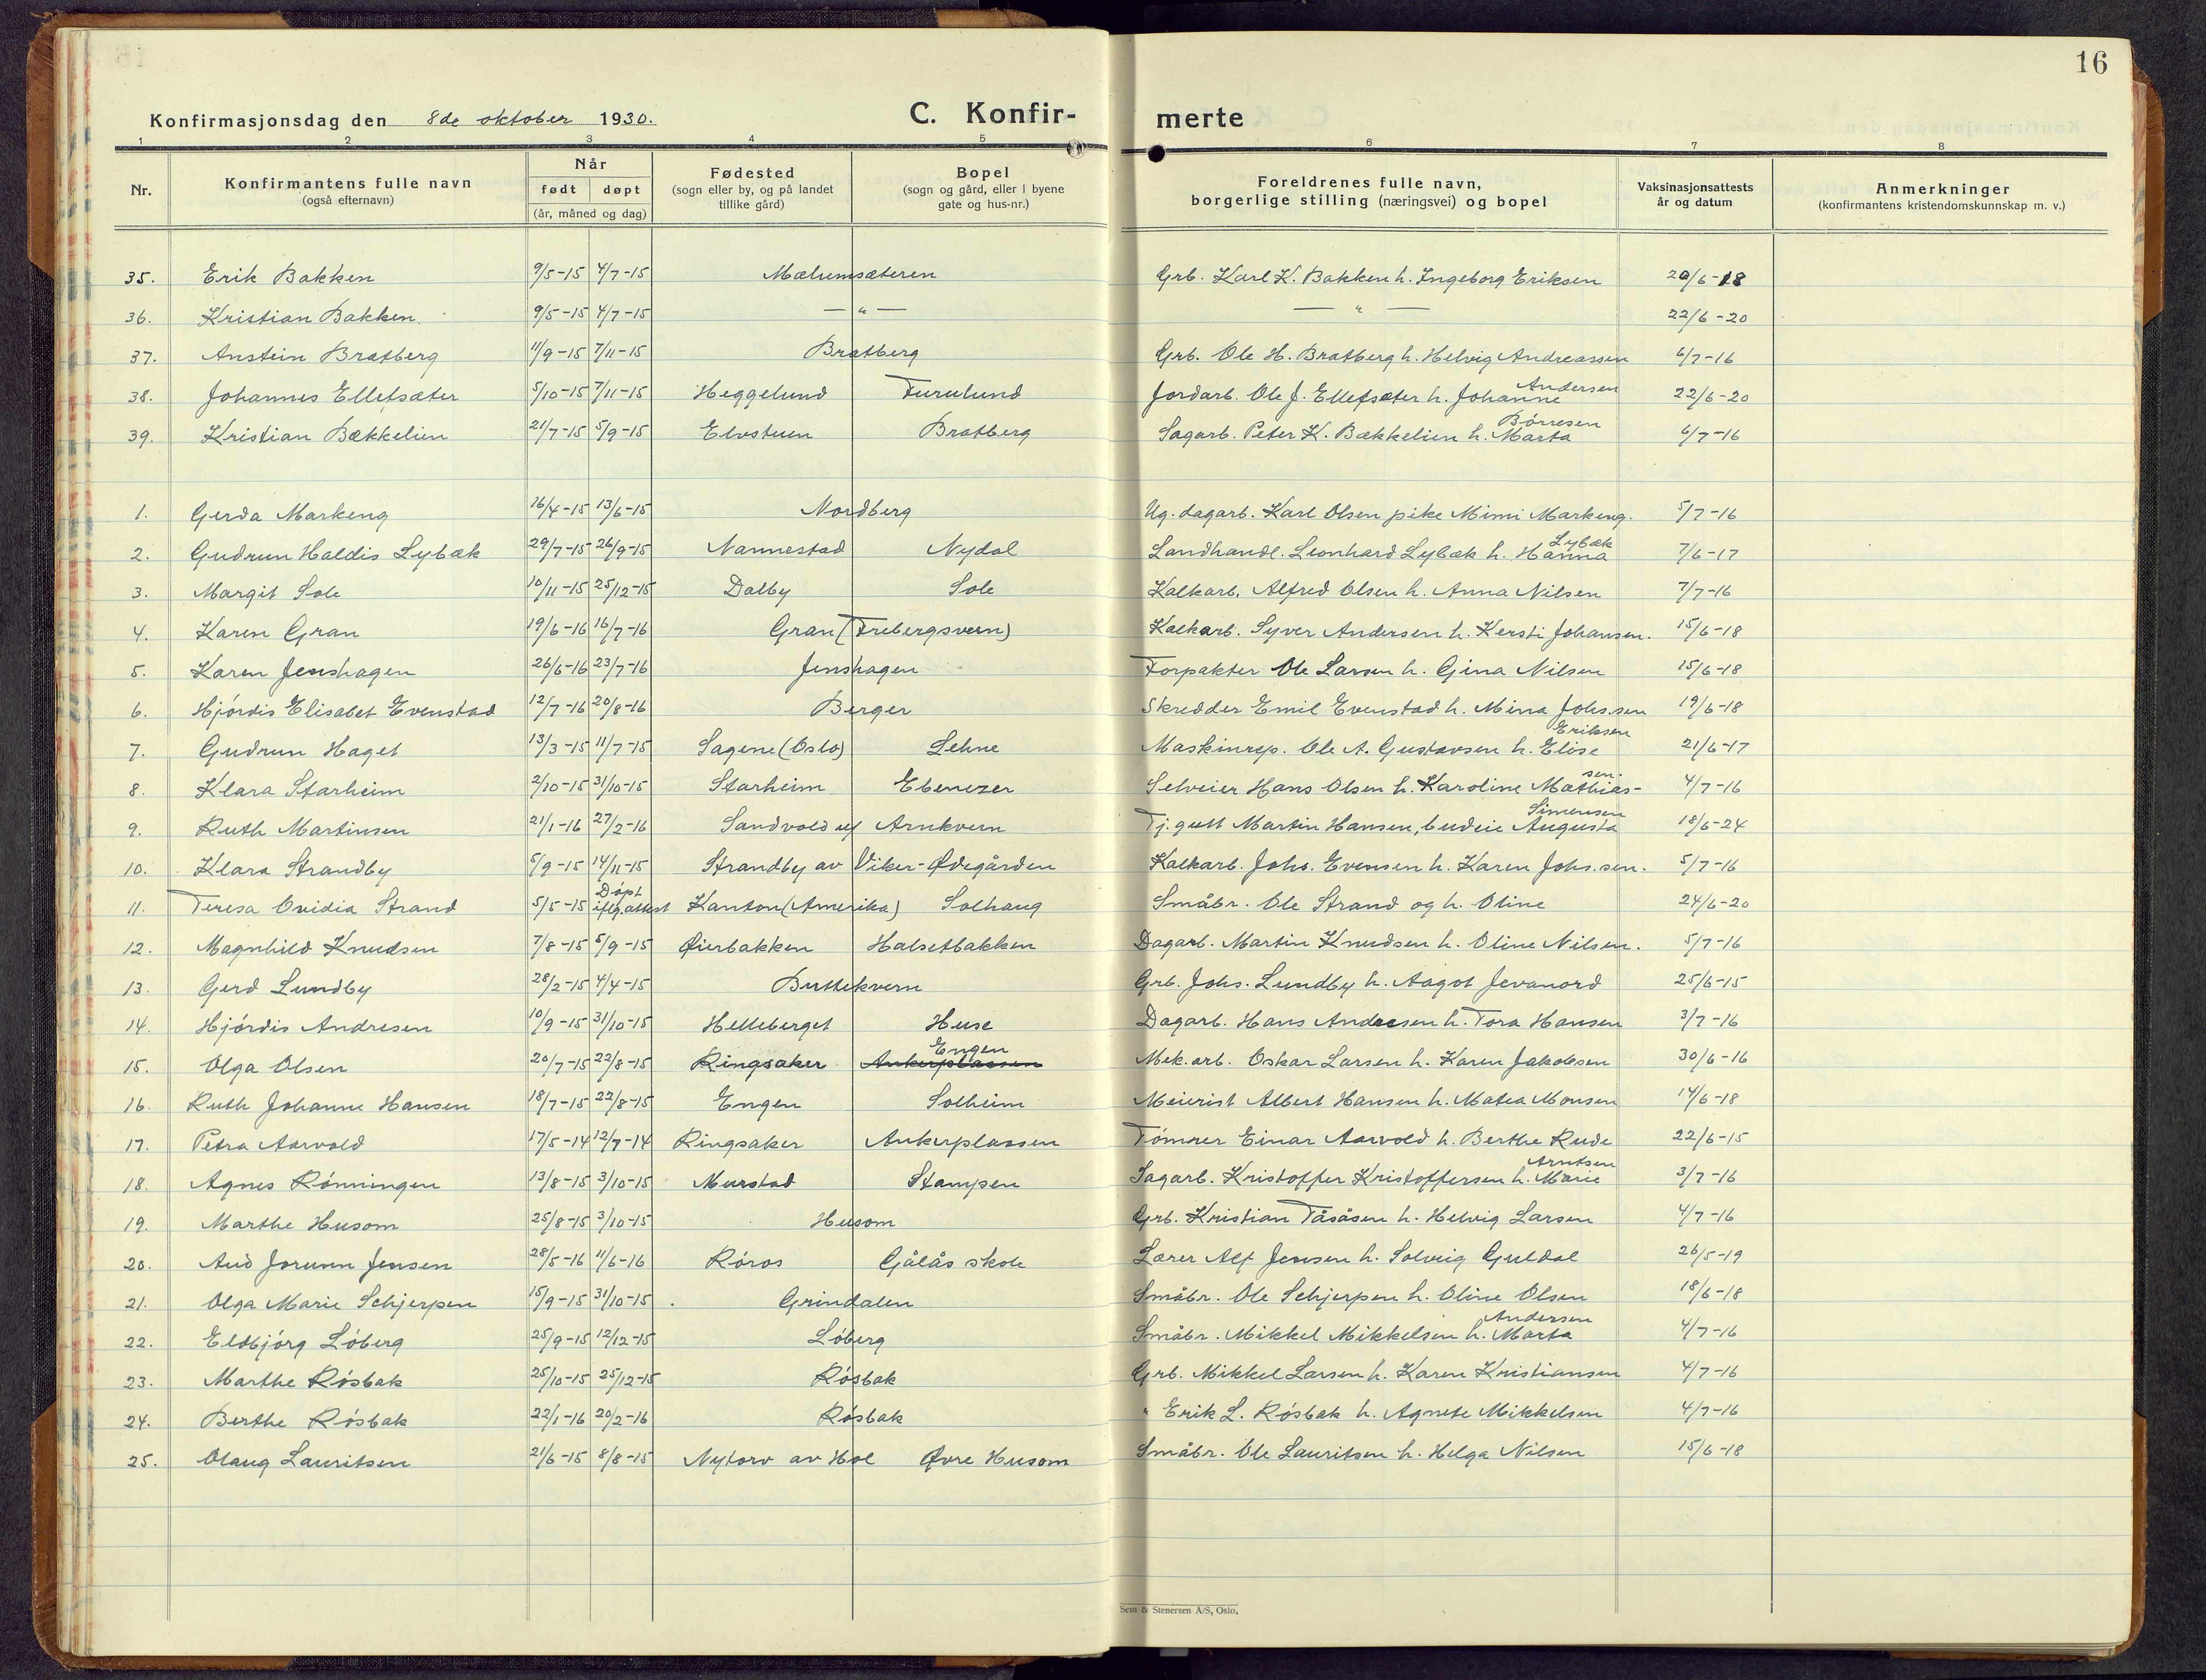 16
Konfirmasjonsdag den 8de oktober 1930. C. Konfir- merte
1 2 3 4 5 6 7 8
Nr. Konfirmantens fulle navn (også efternavn) Når født døpt (år, måned og dag) Fødested (sogn eller by, og på landet tillike gård) Bopel (sogn og gård, eller i byene gate og hus-nr.) Foreldrenes fulle navn, borgerlige stilling (næringsvei) og bopel Vaksinasjonsattests år og datum Anmerkninger (konfirmantens kristendomskunnskap m. v.)
35. Erik Bakken 9/5-15 4/7-15 Mælumsæteren Grb. Karl K. Bakken h. Ingeborg Eriksen 20/6-18
36. Kristian Bakken 9/5-15 4/7-15 — " — — " — 22/6-20
37. Anstein Bratberg 11/9-15 7/11-15 Bratberg Grb. Ole H. Bratberg h. Helvig Andreassen 6/7-16
38. Johannes Ellefsæter 5/10-15 7/11-15 Heggelund Furulund Jordarb. Ole J. Ellefsæter h. Johanne Andersen 22/6-20
39. Kristian Bækkelien 21/7-15 5/9-15 Elvstuen Bratberg Sagarb. Peter K. Bækkelien h. Marta Børresen 6/7-16
1. Gerda Markeng 16/4-15 13/6-15 Nordberg Ug. dagarb. Karl Olsen pike Mimi Markeng. 5/7-16
2. Gudrun Haldis Lybæk 29/7-15 26/9-15 Nannestad Nydal Landhandl. Leonhard Lybæk h. Hanna Lybæk 7/6-17
3. Margit Sole 10/11-15 25/12-15 Dalby Sole Kalkarb. Alfred Olsen h. Anna Nilsen 7/7-16
4. Karen Gran 19/6-16 16/7-16 Gran (Frebergsvern) Kalkarb. Syver Andersen h. Kersti Johansen. 15/6-18
5. Karen Jenshagen 26/6-16 23/7-16 Jenshagen Forpakter Ole Larsen h. Gina Nilsen 15/6-18
6. Hjördis Elisabet Evenstad 12/7-16 20/8-16 Berger Skredder Emil Evenstad h. Mina Johs.sen 19/6-18
7. Gudrun Haget 13/3-15 11/7-15 Sagene (Oslo) Lehne Maskinrep. Ole A. Gustavsen h. Elise Eriksen 21/6-17
8. Klara Starheim 2/10-15 31/10-15 Starheim Ebenezer Selveier Hans Olsen h. Karoline Mathias-sen. 4/7-16
9. Ruth Martinsen 21/1-16 27/2-16 Sandvold u/ Arnkvern Tj. gutt Martin Hansen, budeie Augusta Simensen 18/6-24
10. Klara Strandby 5/9-15 14/11-15 Strandby av Viker-Ødegården Kalkarb. Johs. Evensen h. Karen Johs.sen. 5/7-16
11. Teresa Ovidia Strand 5/5-15 Döpt iflg. attest Kanton (Amerika) Solhaug Småbr. Ole Strand og h. Oline 24/6-20
12. Magnhild Knudsen 7/8-15 5/9-15 Øierbakken Halsetbakken Dagarb. Martin Knudsen h. Oline Nilsen. 5/7-16
13. Gerd Lundby 28/2-15 4/4-15 Buttekvern Grb. Johs. Lundby h. Aagot Jevanord 25/6-15
14. Hjördis Andresen 10/9-15 31/10-15 Helleberget Huse Dagarb. Hans Andresen h. Tora Hansen 3/7-16
15. Olga Olsen 20/7-15 22/8-15 Ringsaker Engen Ankerplassen Mek.arb. Oskar Larsen h. Karen Jakobsen 30/6-16
16. Ruth Johanne Hansen 18/7-15 22/8-15 Engen Solheim Meierist Albert Hansen h. Matea Monsen 14/6-18
17. Petra Aarvold 17/5-14 12/7-14 Ringsaker Ankerplassen Tömrer Einar Aarvold h. Berthe Rude 22/6-15
18. Agnes Rönningen 13/8-15 3/10-15 Murstad Stampen Sagarb. Kristoffer Kristoffersen h. Marie Arntsen 3/7-16
19. Marthe Husom 25/8-15 3/10-15 Husom Grb. Kristian Tåsåsen h. Helvig Larsen 4/7-16
20. Aud Jorunn Jensen 28/5-16 11/6-16 Röros Gålås skole Lærer Alf Jensen h. Solveig Guldal 26/5-19
21. Olga Marie Schjerpen 15/9-15 31/10-15 Grindalen Småbr. Ole Schjerpen h. Oline Olsen 18/6-18
22. Eldbjörg Löberg 25/9-15 12/12-15 Löberg Småbr. Mikkel Mikkelsen h. Marta Andersen 4/7-16
23. Marthe Rösbak 25/10-15 25/12-15 Rösbak Grb. Mikkel Larsen h. Karen Kristiansen 4/7-16
24. Berthe Rösbak 22/1-16 20/2-16 Rösbak " Erik L. Rösbak h. Agnete Mikkelsen 4/7-16
25. Olaug Lauritsen 21/6-15 8/8-15 Nytorv av Hol Øvre Husom Småbr. Ole Lauritsen h. Helga Nilsen 15/6-18
Sem & Stenersen A/S, Oslo.